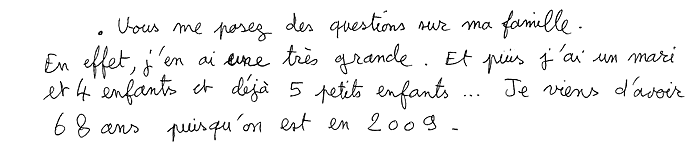 . Vous me posez des questions sur ma famille.
En effet, j'en ai une très grande. Et puis j'ai un mari
et 4 enfants et déjà 5 petits enfants... Je viens d'avoir
68 ans puisqu'on est en 2009.